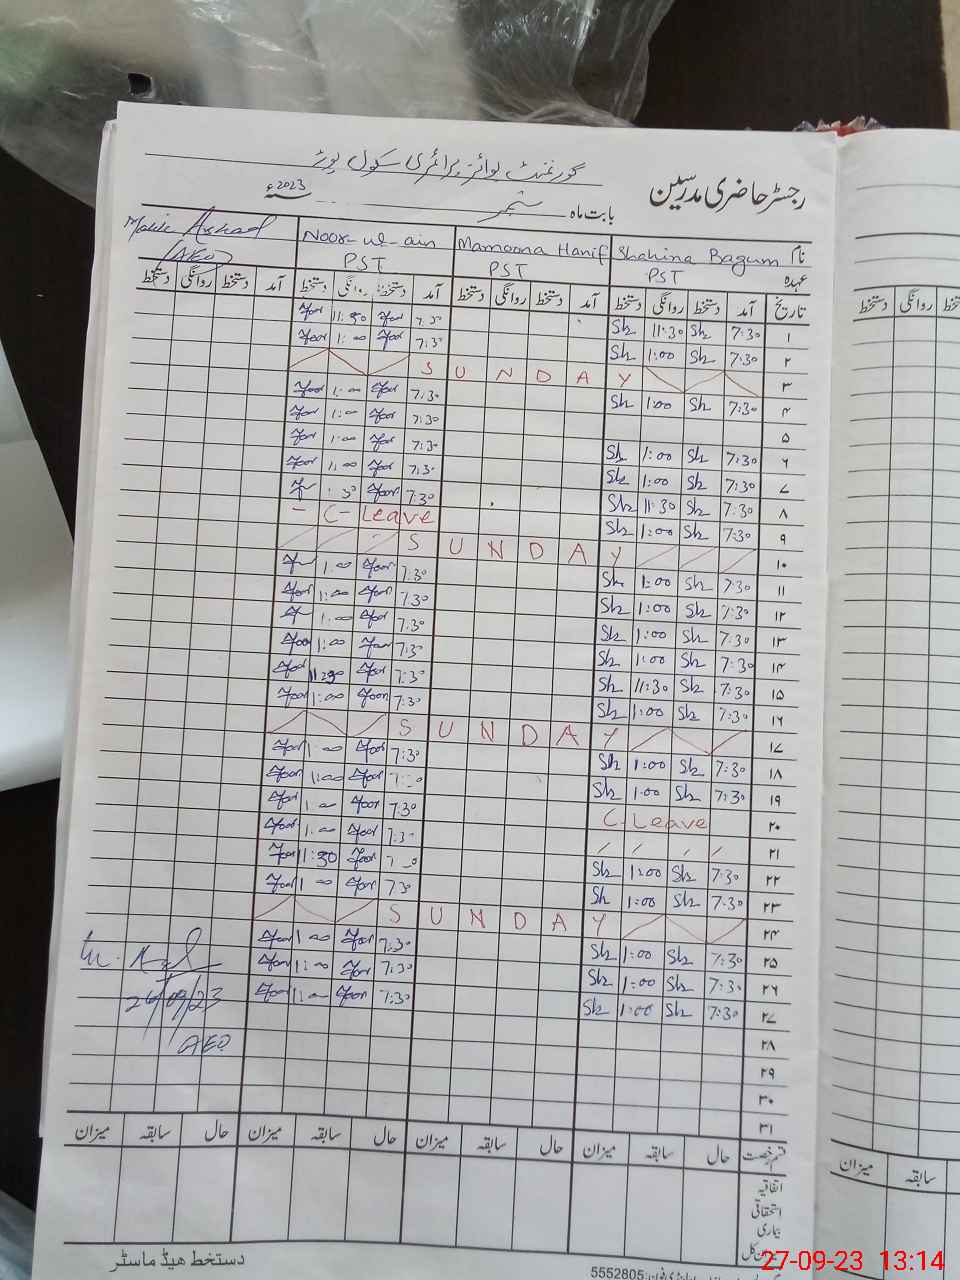 گورنمنٹ بوائز پرائمری سکول
رجسٹر حاضری مدرسین
بابت ماہ ستمبر سنہ 2023ء
نام Shahina Bagum Mamoona Hanif Noor-ul-ain
عہدہ PST PST PST (AEO)
تاریخ آمد دستخط روانگی دستخط آمد دستخط روانگی دستخط آمد دستخط روانگی دستخط آمد دستخط روانگی دستخط
۱ 7:30 Sh 11:30 Sh 7:30 Noor 11:30 Noor
۲ 7:30 Sh 1:00 Sh 7:30 Noor 1:00 Noor
۳ SUNDAY
۴ 7:30 Sh 1:00 Sh 7:30 Noor 1:00 Noor
۵ 7:30 Noor 1:00 Noor
۶ 7:30 Sh 1:00 Sh 7:30 Noor 1:00 Noor
۷ 7:30 Sh 1:00 Sh 7:30 Noor 1:00 Noor
۸ 7:30 Sh 11:30 Sh 7:30 Noor
۹ 7:30 Sh 1:00 Sh C-Leave
۱۰ SUNDAY
۱۱ 7:30 Sh 1:00 Sh 7:30 Noor 1:00
۱۲ 7:30 Sh 1:00 Sh 7:30 Noor 1:00 Noor
۱۳ 7:30 Sh 1:00 Sh 7:30 Noor 1:00
۱۴ 7:30 Sh 1:00 Sh 7:30 Noor 1:00 Noor
۱۵ 7:30 Sh 11:30 Sh 7:30 Noor 11:30 Noor
۱۶ 7:30 Sh 1:00 Sh 7:30 Noor 1:00 Noor
۱۷ SUNDAY
۱۸ 7:30 Sh 1:00 Sh 7:30 Noor 1:00 Noor
۱۹ 7:30 Sh 1:00 Sh 7:30 Noor 1:00 Noor
۲۰ C-Leave 7:30 Noor 1:00 Noor
۲۱ 7:30 Noor 1:00 Noor
۲۲ 7:30 Sh 1:00 Sh Noor 11:30 Noor
۲۳ 7:30 Sh 1:00 Sh 7:30 Noor 1:00 Noor
۲۴ SUNDAY
۲۵ 7:30 Sh 1:00 Sh 7:30 Noor 1:00 Noor
۲۶ 7:30 Sh 1:00 Sh 7:30 Noor 1:00 Noor
۲۷ 7:30 Sh 1:00 Sh 7:30 Noor 1:00 Noor
26/09/23
۲۸ AEO
۲۹
۳۰
۳۱
قسم رخصت حال سابقہ میزان حال سابقہ میزان حال سابقہ میزان حال سابقہ میزان
اتفاقیہ
استحقاقی
بیماری
دستخط ھیڈ ماسٹر
فون: 5552805
روانگی دستخط
میزان سابقہ
27-09-23 13:14